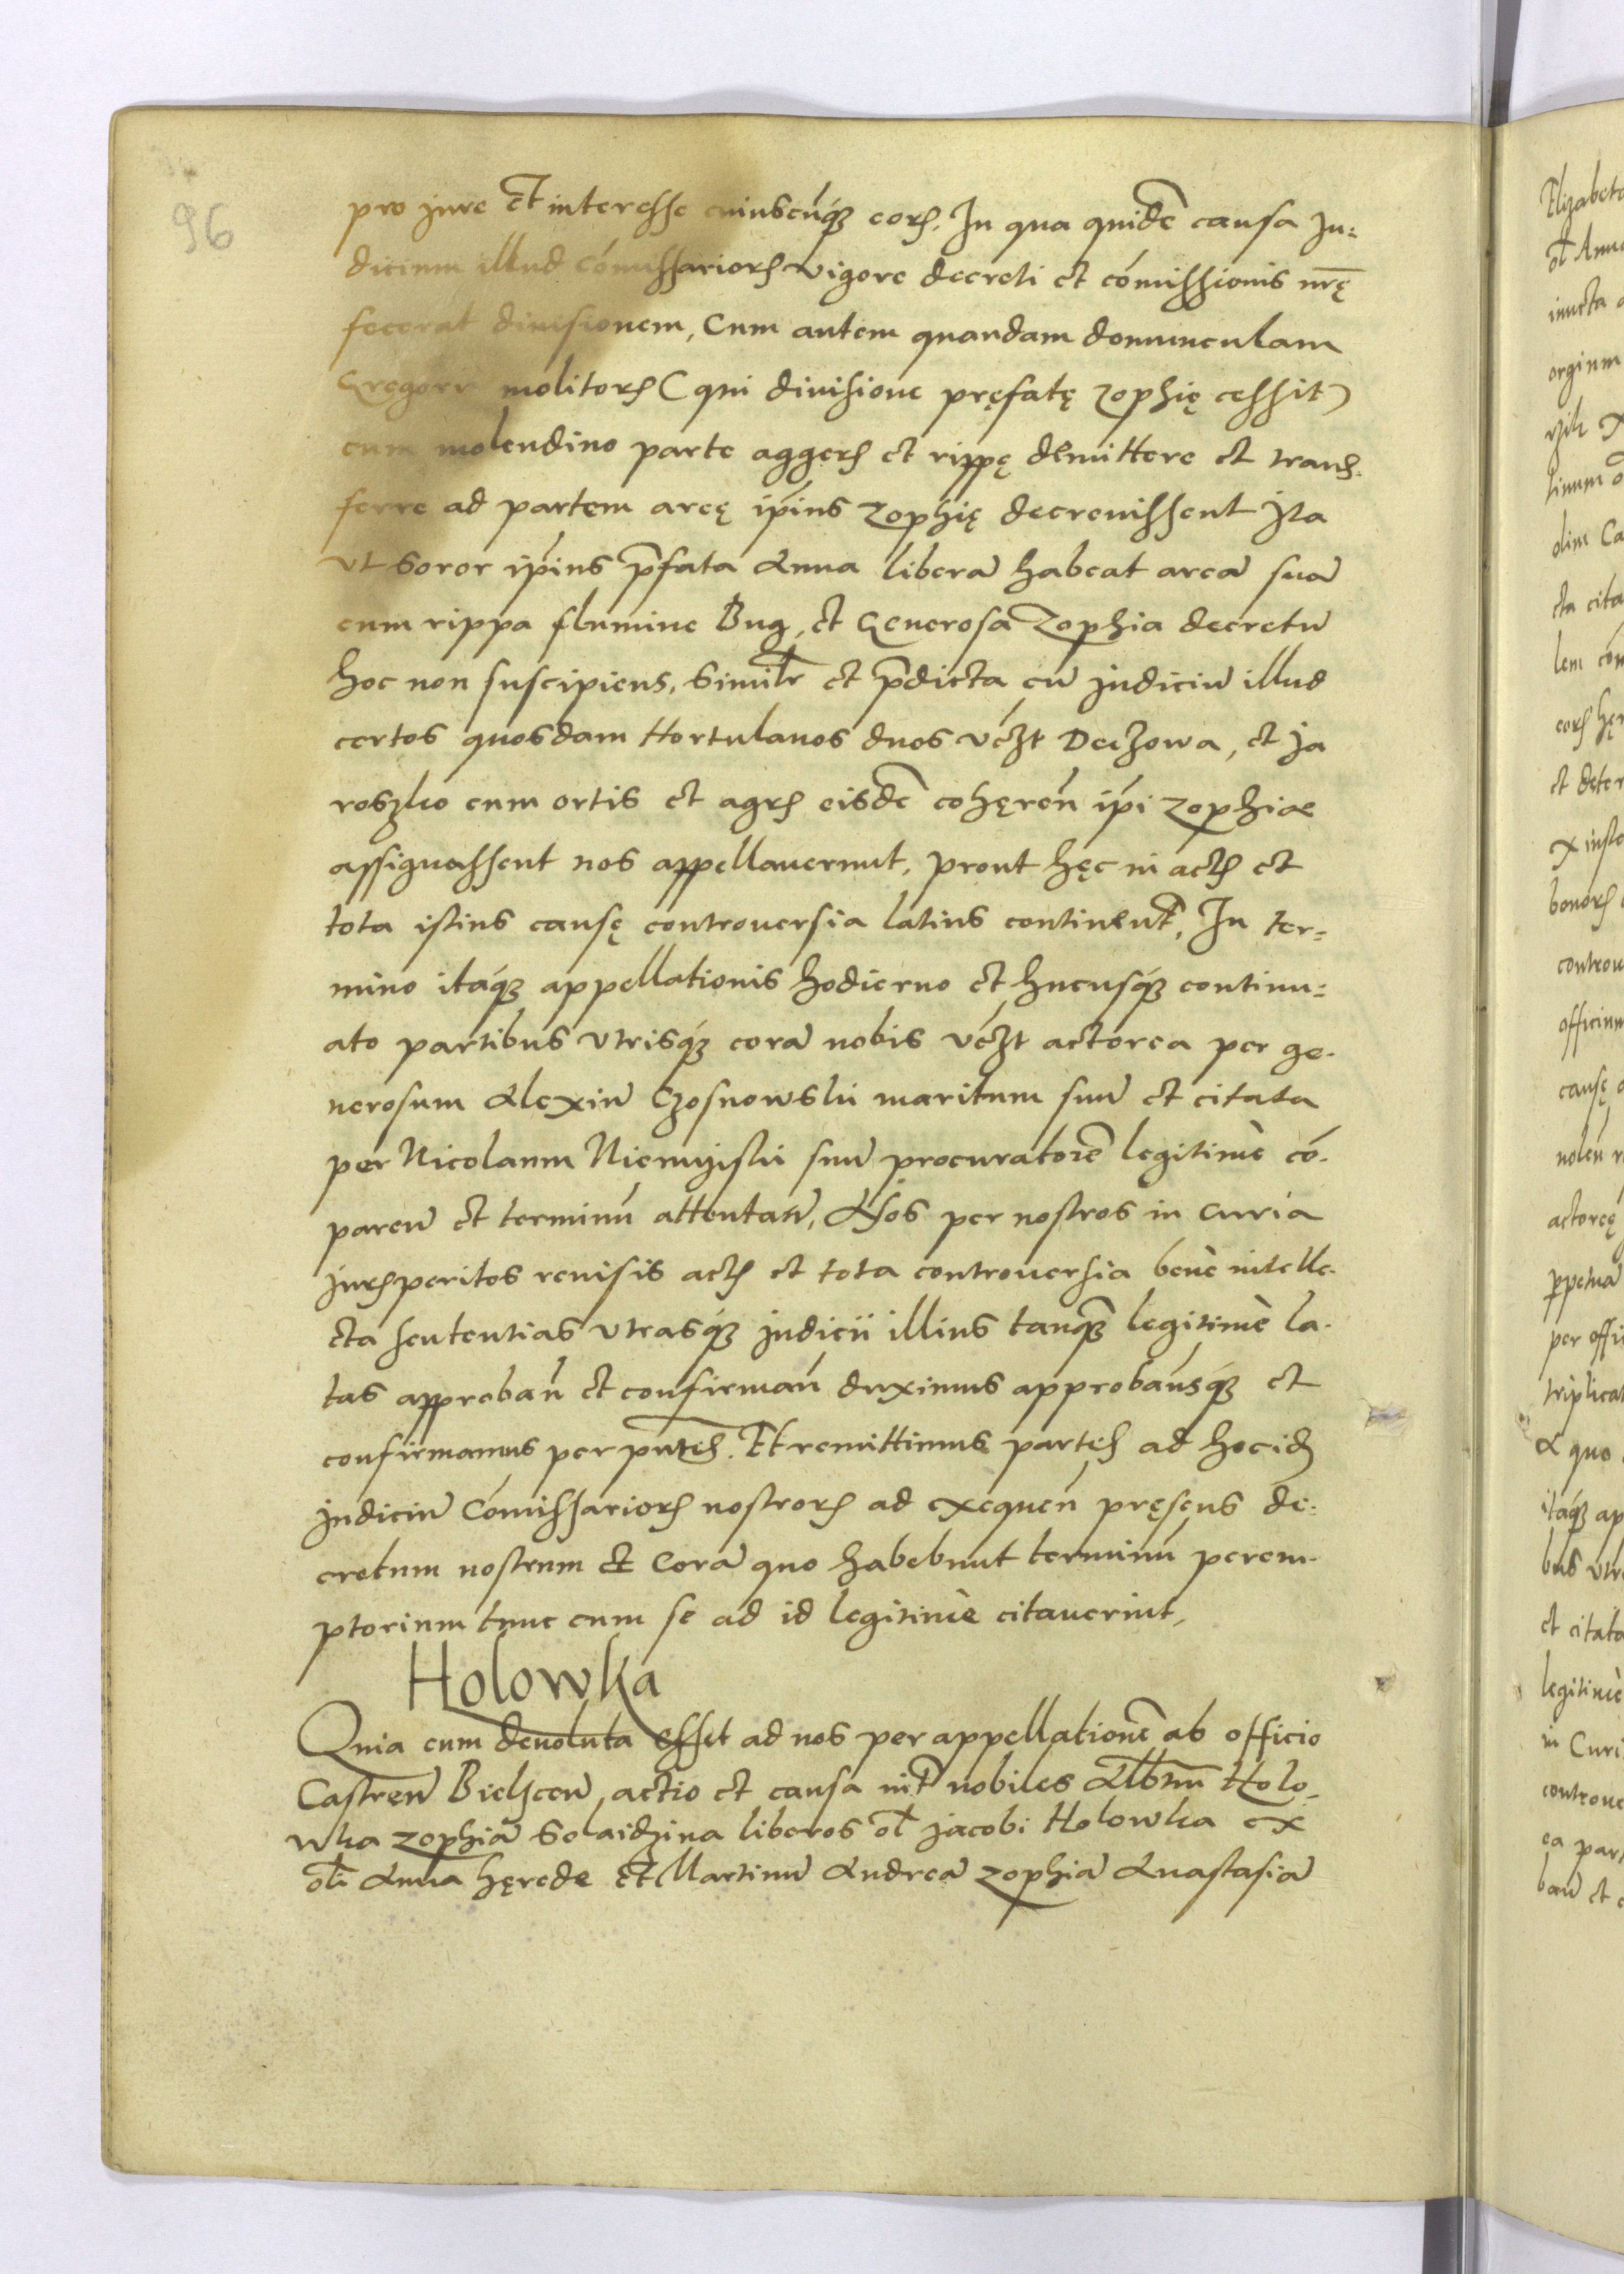 96
pro jure et interesse cuiuscūq; eorꝭ. In qua quidē causa Ju=
dicium illud Cōmissariorꝭ vigore decreti et cōmissionis nr̄ę
fecerat diuisionem, Cum autem quandam domunculam
Gregorii molitorꝭ (qui diuisione pręfatę zophię cessit)
cum molendino parte aggerꝭ et rippę dēmittere et tranſ-
ferre ad partem areę ip̄ius zophię decreuissent Ita
vt soror ip̄ius p̄fata Anna liberā habeat areā suā
cum rippa flumine Bug, et Generosa Zophia decretū
hoc non suscipiens, Similr̄ et p̄dicta cū judiciū illud
certos quosdam Hortulanos duos vczt Deczowa, et Ja
roszko cum ortis et agrꝭ eisdē cohęreñ ip̄i zophiae
assignassent nos appellauerunt, prout hęc in actꝭ et
tota istius causę controuersia latius continent̄, In ter=
mino itaq; appellationis hodierno et hucusq; continu=
ato partibus vtrisq; corā nobis vczt actorea per ge-
nerosum Alexiū Czosnowski maritum suū et citata
per Nicolaum Niemyiski suū procuratorē legitimè cō-
pareñ et terminū attentañ, Nos per nostros in Curia
jurꝭperitos reuisis actꝭ et tota controuersia benè intelle-
cta sententias vtrasq; judicii illius tanq̄ legitimè la-
tas approbañ et confirmañ duximus approbamusq; et
confirmamus per pn̄tes. Et remittimus partes ad hoc id
judiciū Cōmissariorꝭ nostrorꝭ ad exequeñ pręsens de-
cretum nostrum et Corā quo habebunt terminū perem-
ptorium tunc cum se ad id legitimè citauerint,
Holowka
Quia cum deuoluta esset ad nos per appellationē ab officio
Castreñ Bielsceñ, actio et causa int̄ nobiles Albr̄tū Holo-
wka zophiā Solaidzina liberos ol̄ jacobi Holowka ex
oli Anna hęrede et Martinū Andreā zophiā Anastasiā